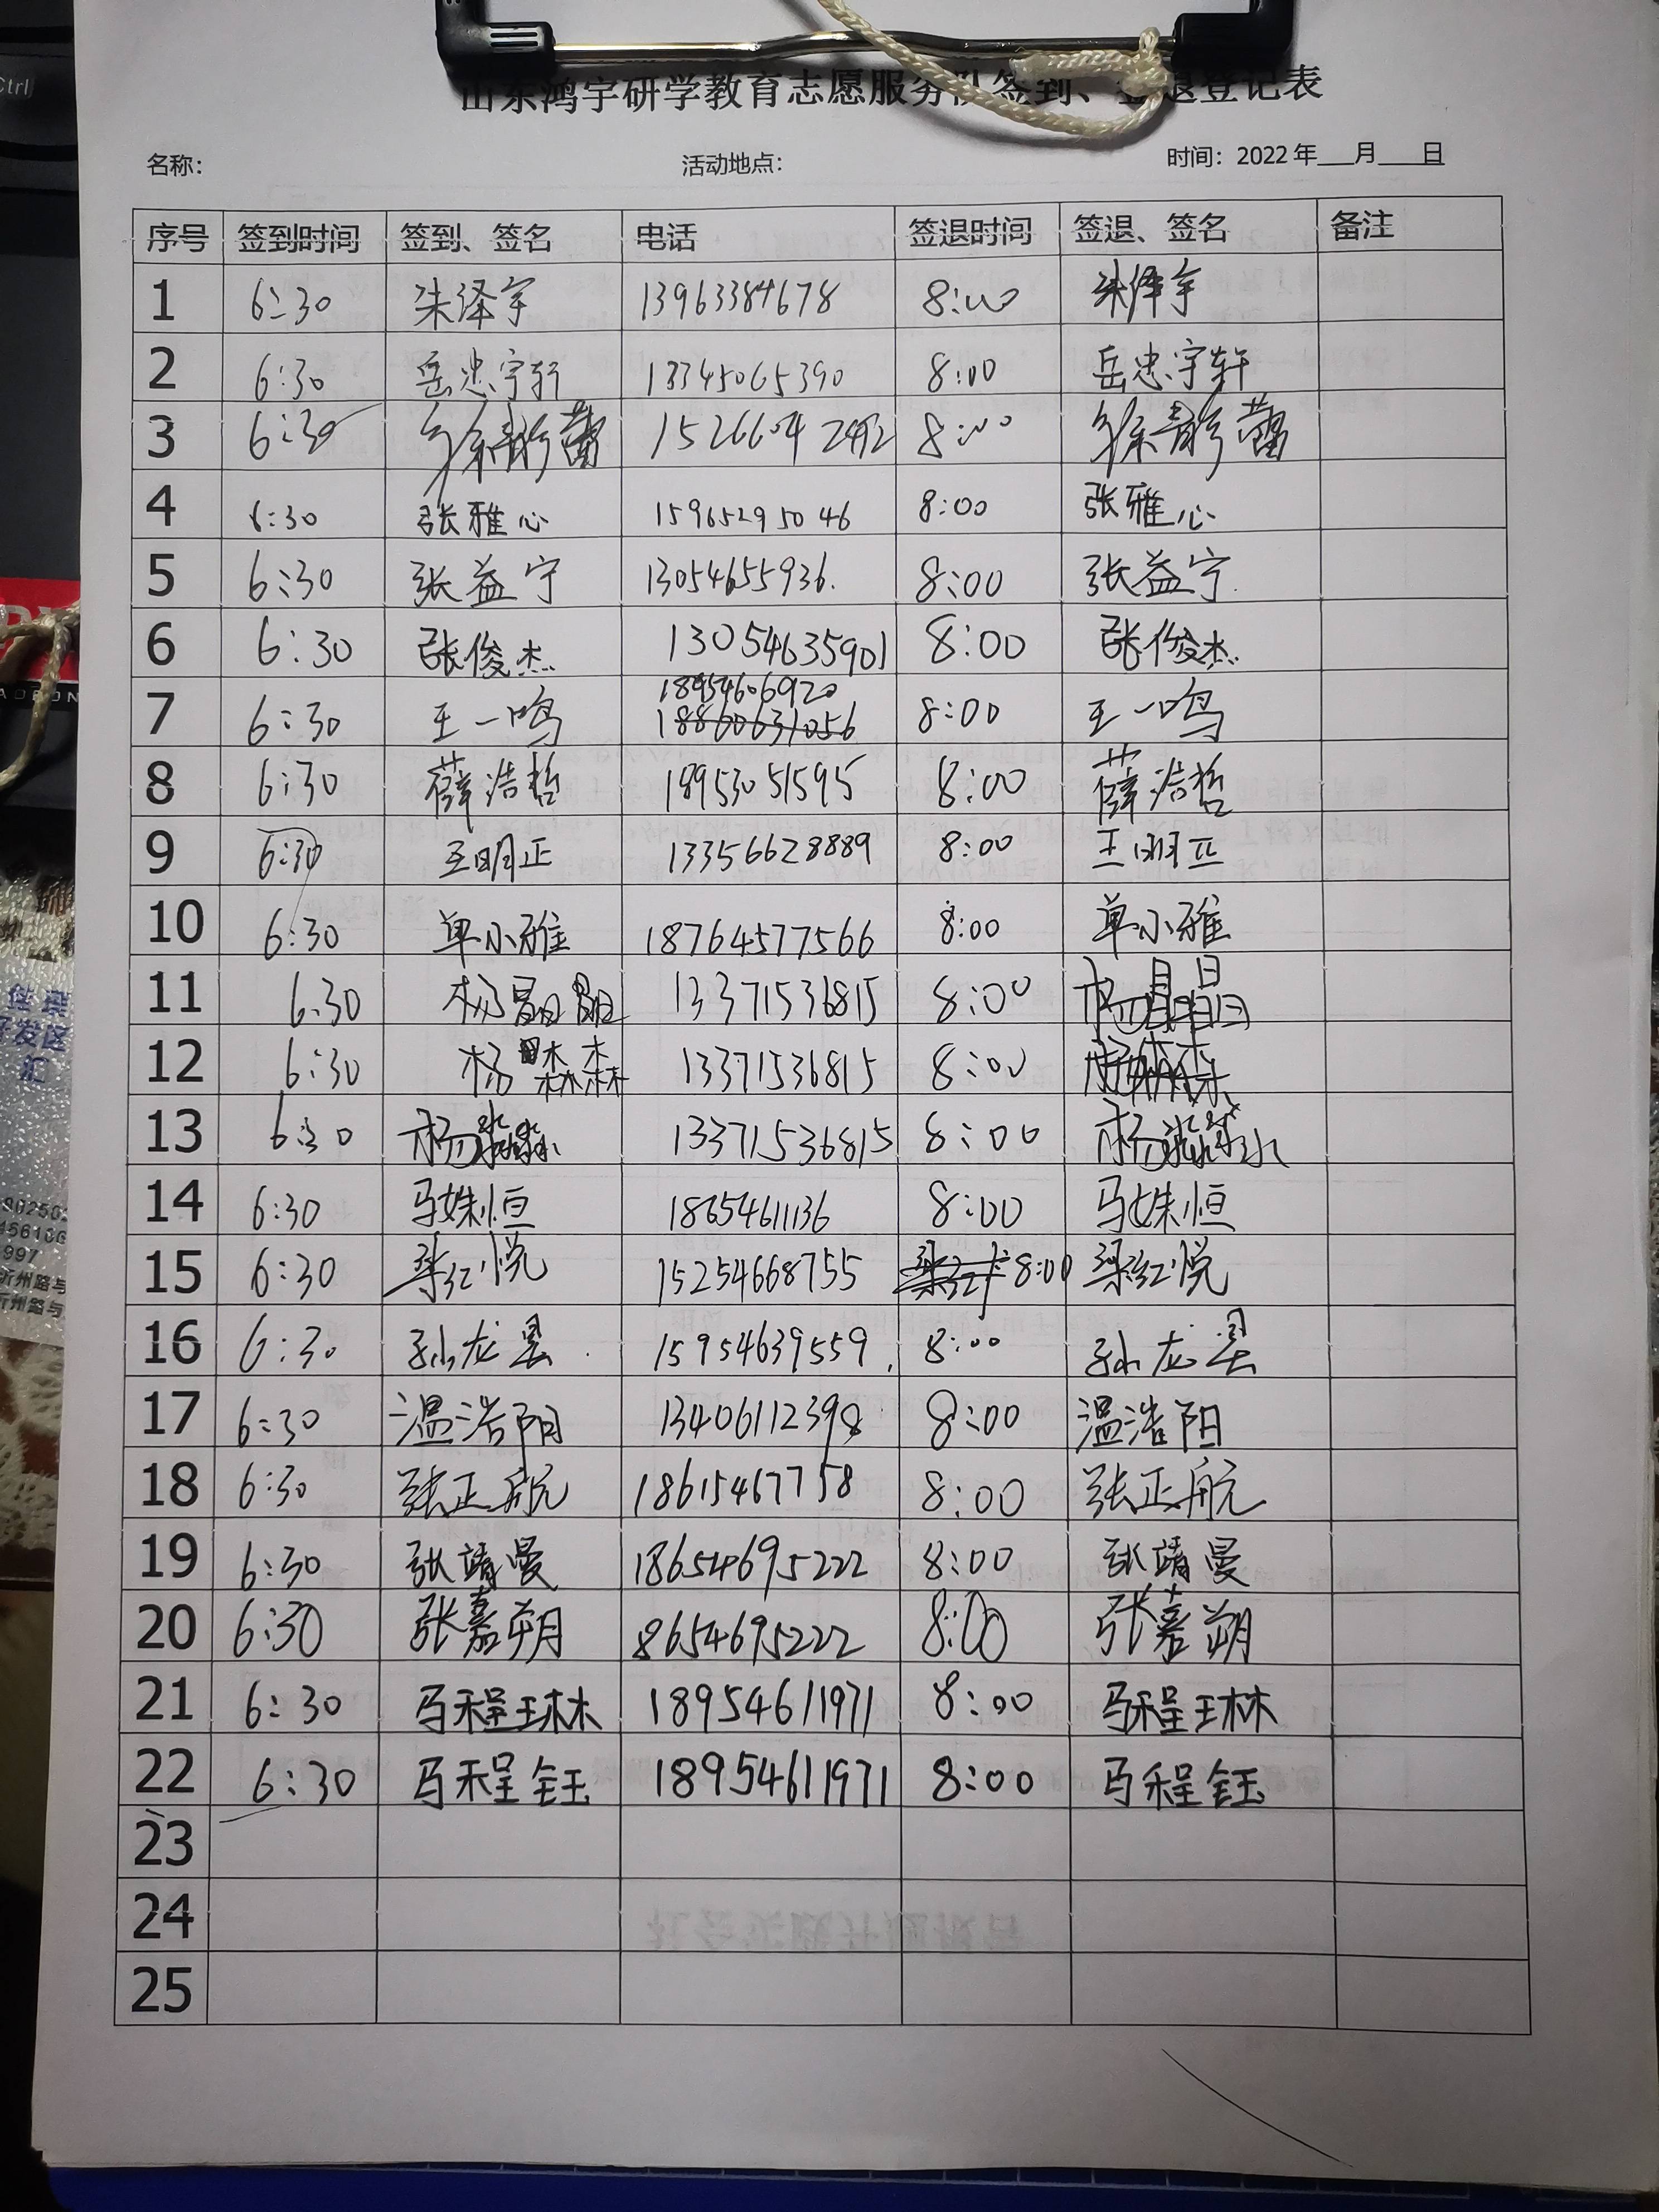 Ctrl
山东鸿宇研学教育志愿服务队签到、签退登记表
名称： 活动地点： 时间：2022年___月___日
序号 签到时间 签到、签名 电话 签退时间 签退、签名 备注
1 6:30 朱泽宇 13963384678 8:00 朱泽宇
2 6:30 岳忠宇轩 13345065390 8:00 岳忠宇轩
3 6:30 徐静蕾 15266042472 8:00 徐静蕾
4 6:30 张雅心 15965295046 8:00 张雅心
5 6:30 张益宁 13054655936. 8:00 张益宁.
6 6:30 张俊杰 13054635901 8:00 张俊杰
18954606920
7 6:30 王一鸣 18860631056 8:00 王一鸣
8 6:30 薛浩哲 18953051595 8:00 薛浩哲
9 6:30 王明正 13356628889 8:00 王明正
10 6:30 单小雅 18764577566 8:00 单小雅
11 6:30 杨晶晶 13371536815 8:00 杨晶晶
12 6:30 杨森森 13371536815 8:00 杨森森
13 6:30 杨淼淼 13371536815 8:00 杨淼淼
14 6:30 马姝恒 18654611136 8:00 马姝恒
15 6:30 梁红悦 15254668755 8:00 梁红悦
16 6:30 孙龙 15954639559 8:00 孙龙
17 6:30 温浩阳 13406112398 8:00 温浩阳
18 6:30 张正航 18615467758 8:00 张正航
19 6:30 张靖曼 18654695222 8:00 张靖曼
20 6:30 张嘉朔 8654695222 8:00 张嘉朔
21 6:30 马程琳 18954611971 8:00 马程琳
22 6:30 马程钰 18954611971 8:00 马程钰
23
24
25